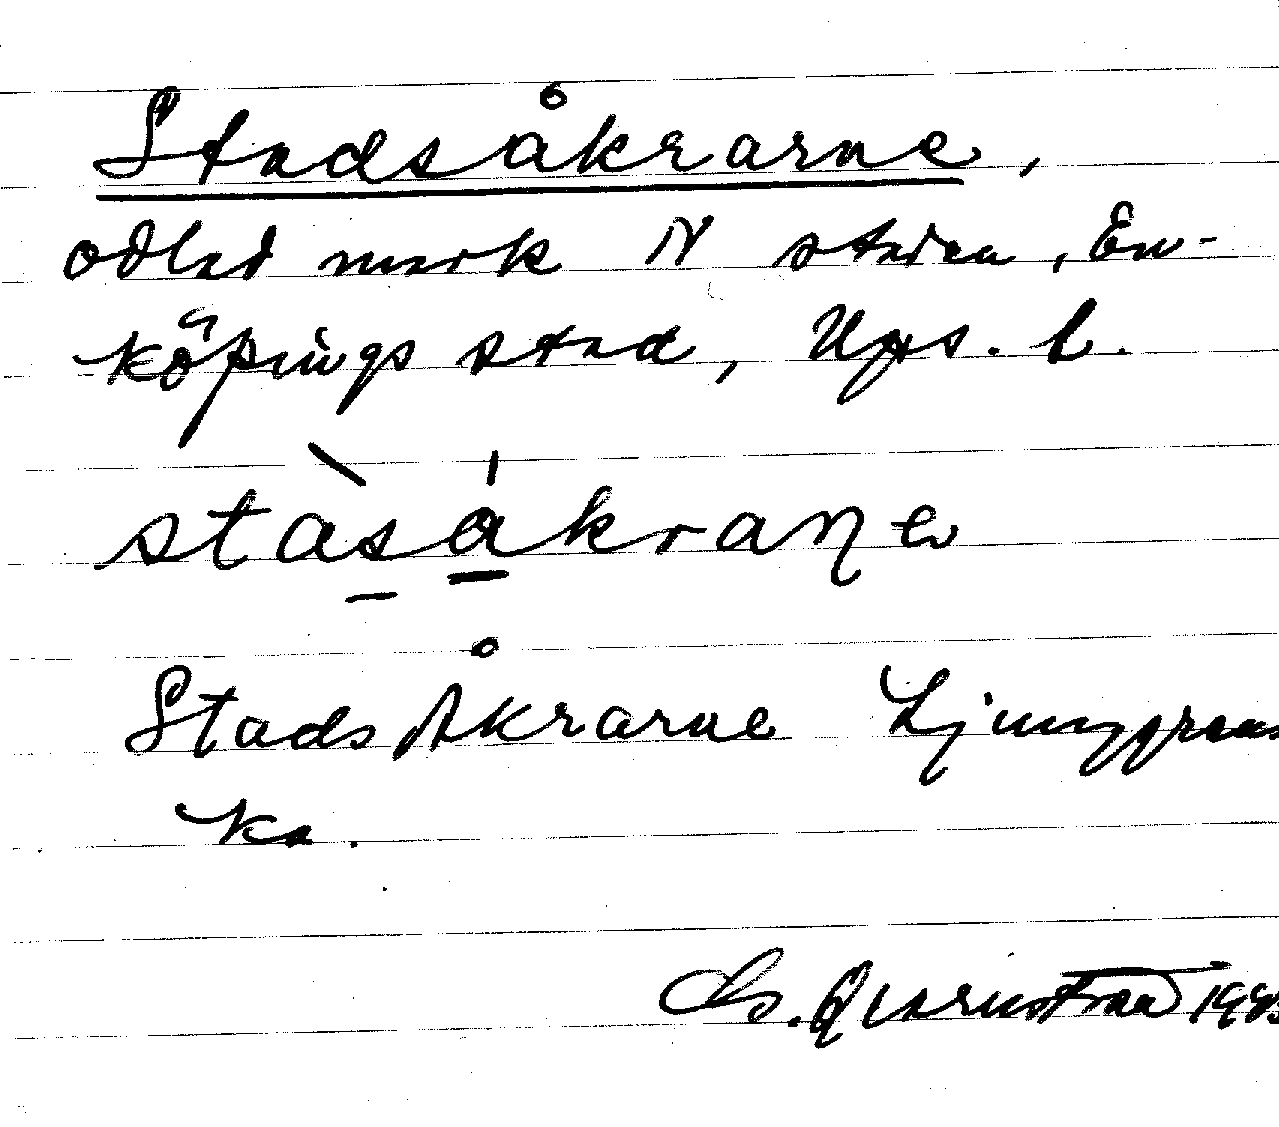 Stadsåkrarne,
odlad mark N staden, En-
köpings stad, Ups. l.
stàsákrane
Stads Åkrarne Ljunggrens
ka.
G. Qvarnström